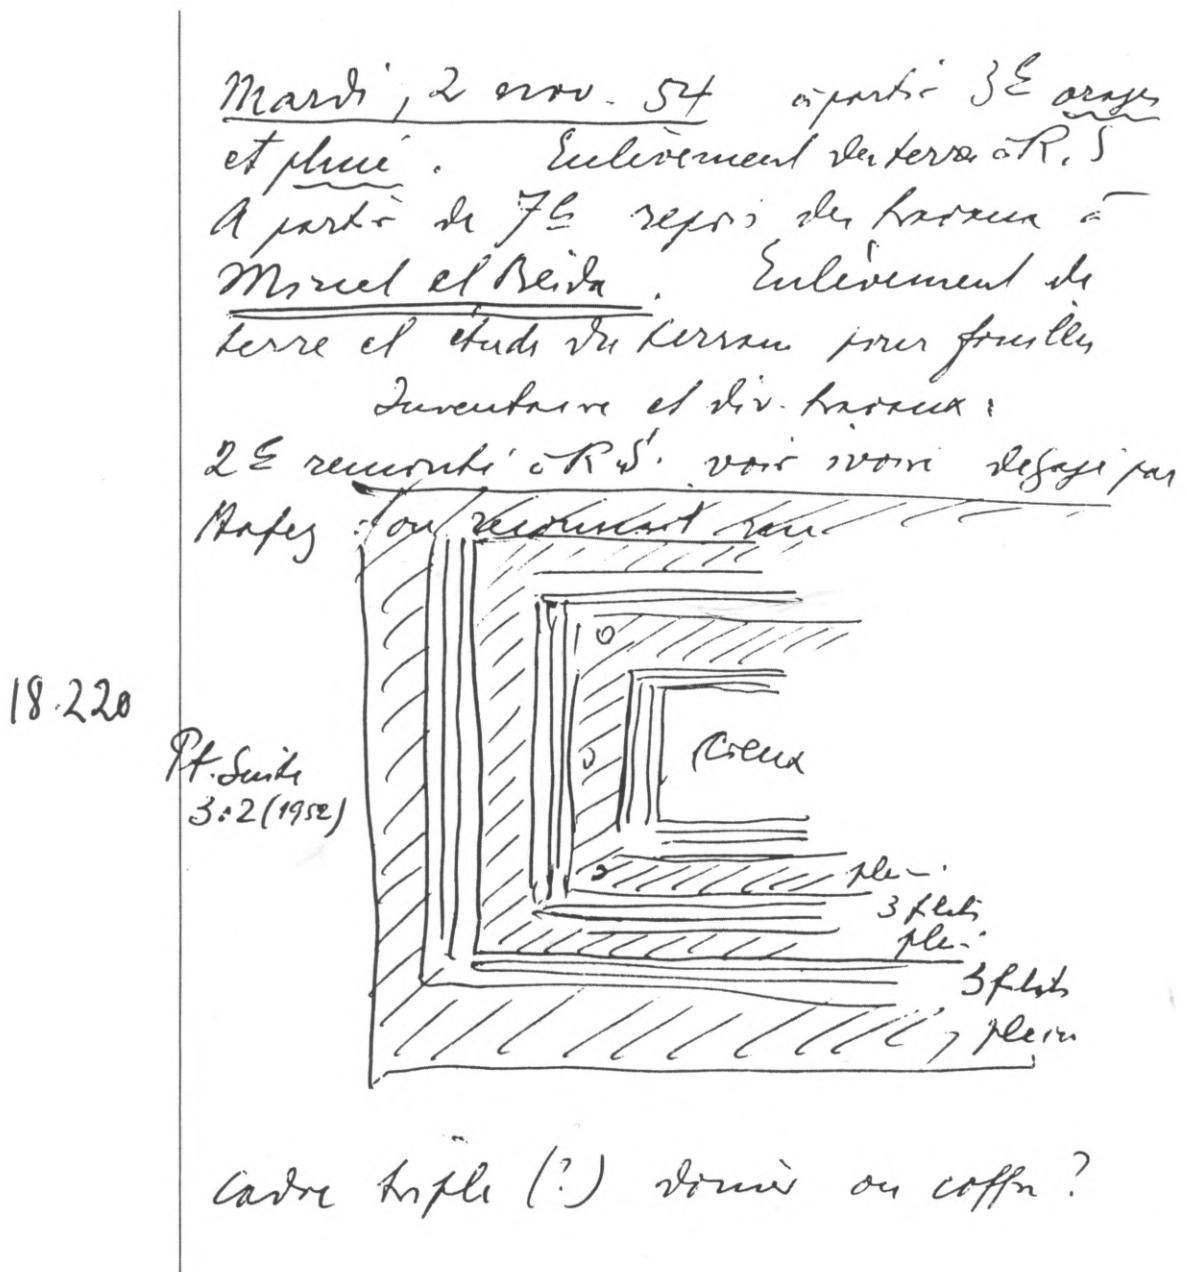 Mardi, 2 nov. 54 à partir 3E orages
et pluie. Enlèvement des terres à R. S
A partir de 7h repris des travaux à
Minet el Beida. Enlèvement de
terre et étude du terrain pour fouilles
Inventaire et div. travaux.
2E remonté à R.S. voir ivoire dégagé par
Hafez : on reconnait
18.220
Pt. Suite
3:2 (1952)
creux
plein
3 filets
plein
3 filets
plein
cadre triple (?) ou coffre ?